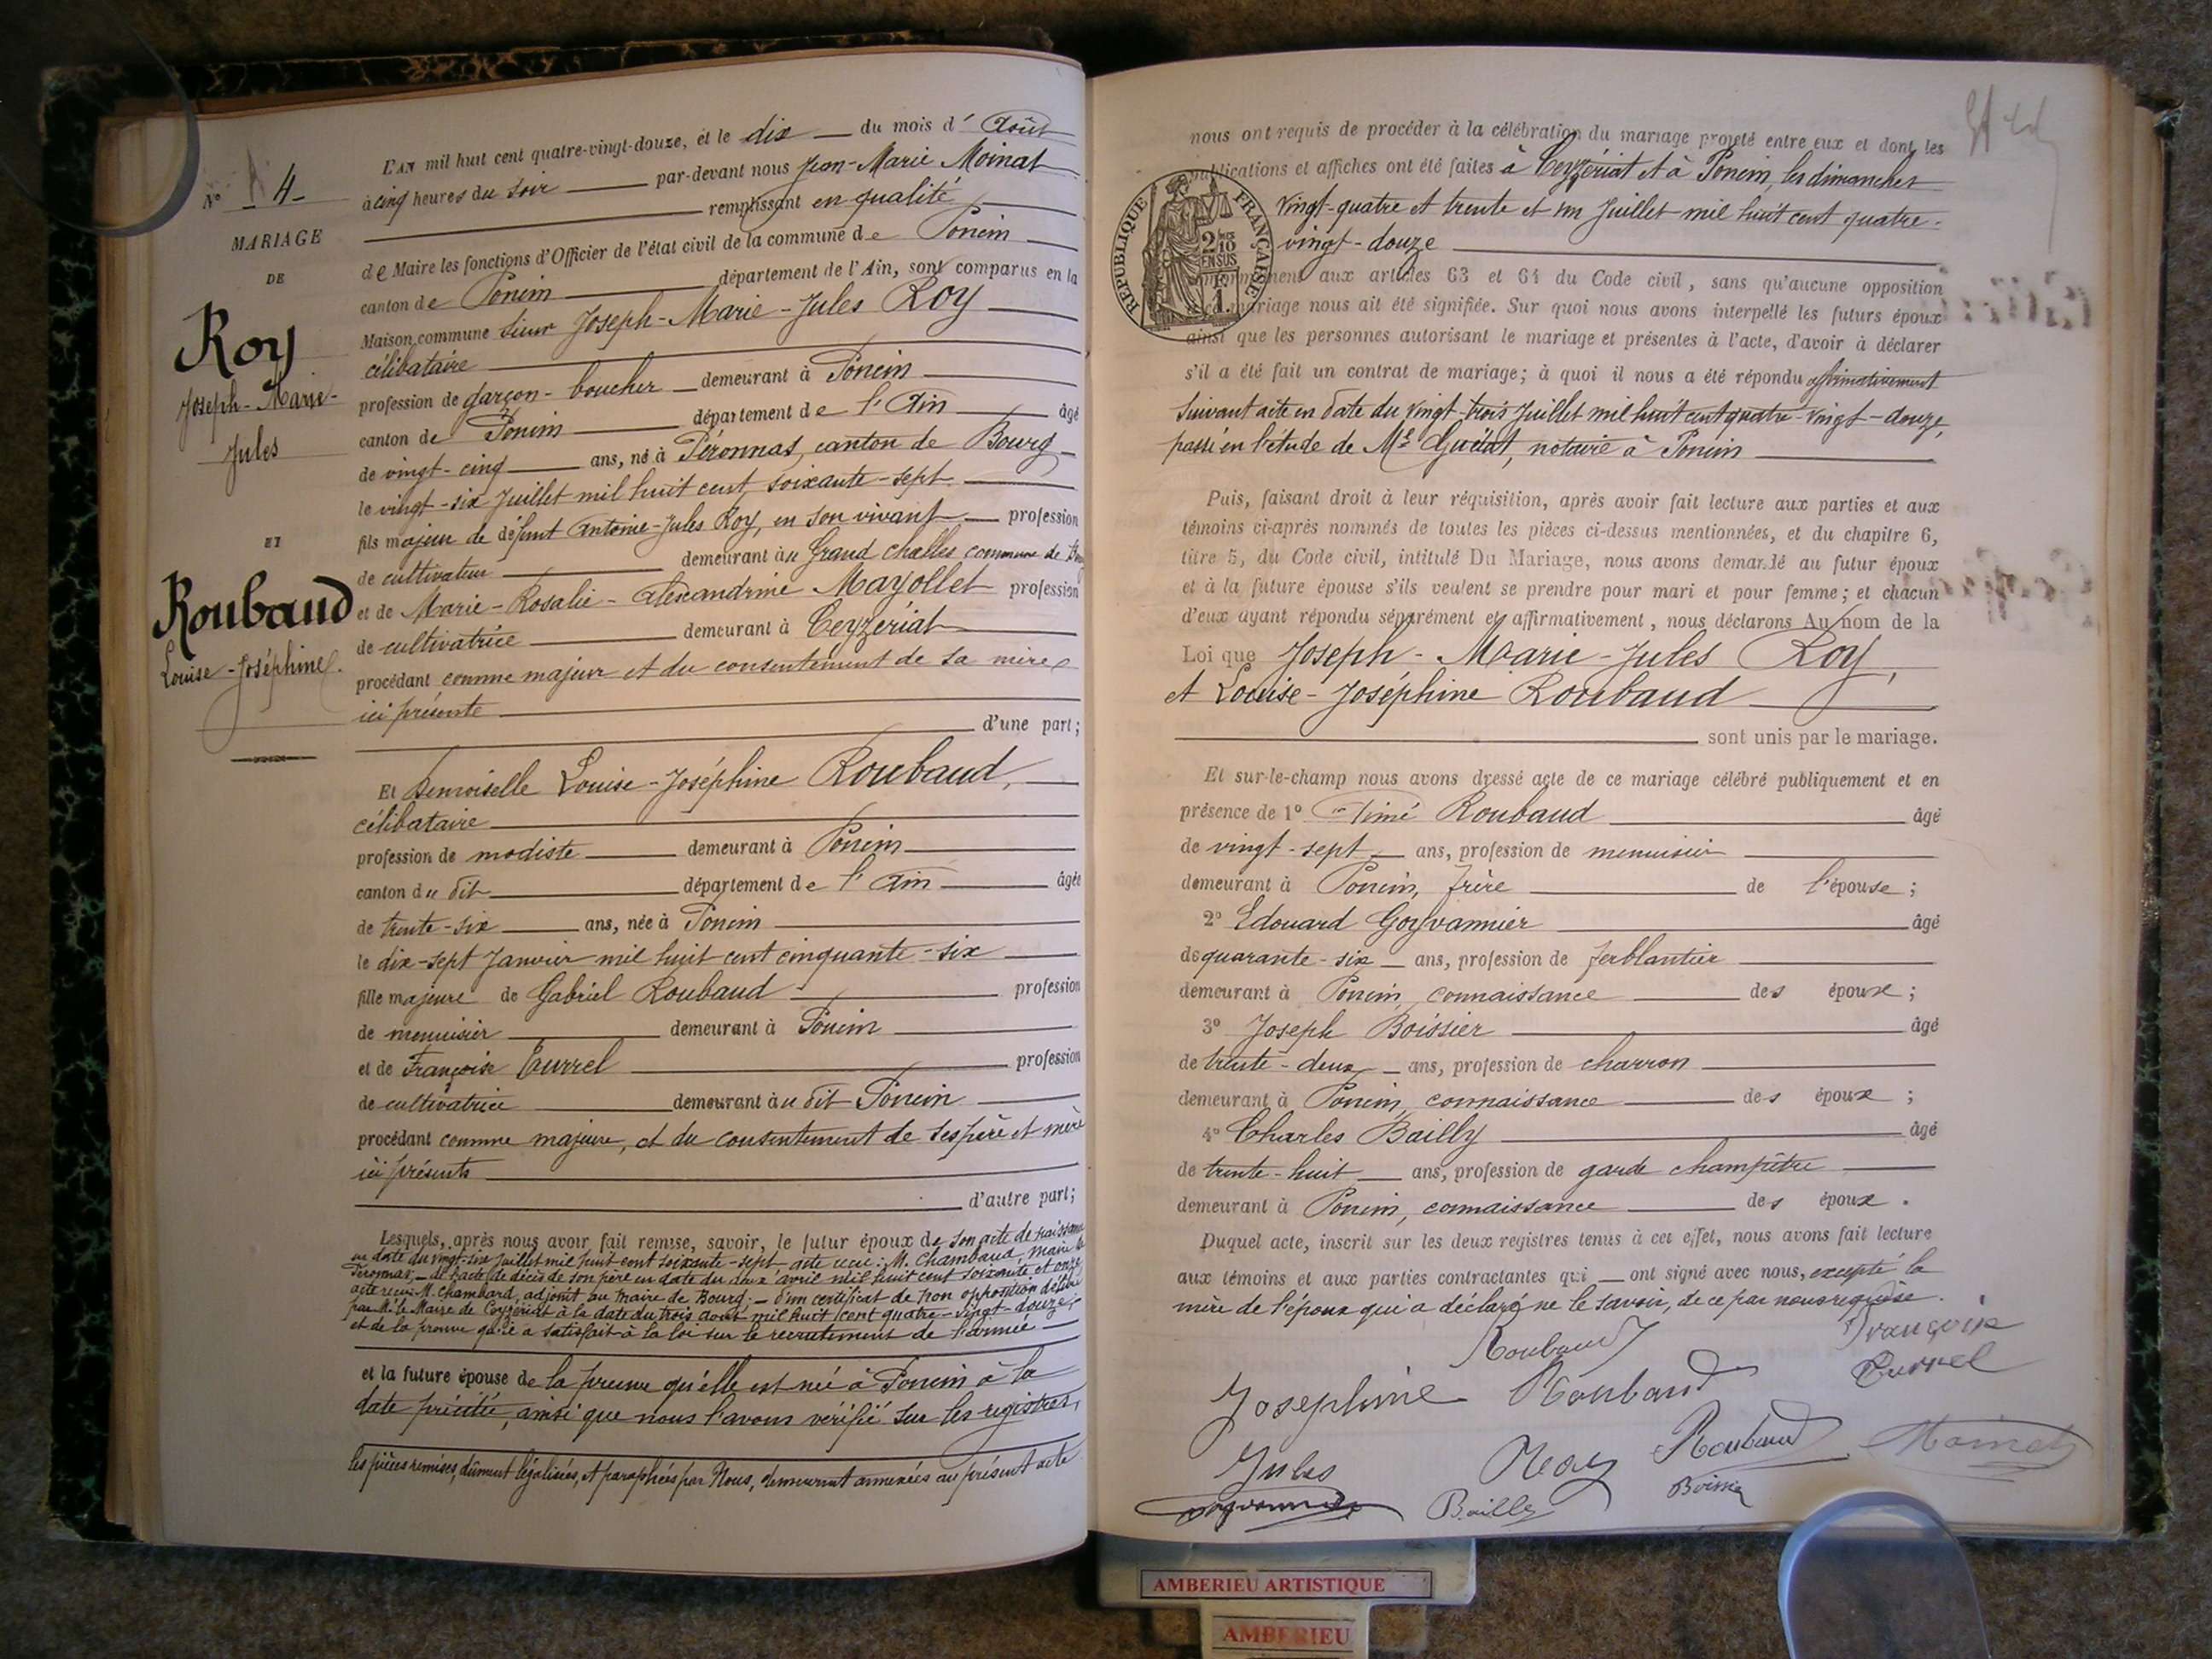 N° 4
MARIAGE
DE
Roy
Joseph-Marie-
Jules
ET
Roubaud
Louise-Joséphine
L'AN mil huit cent quatre-vingt-douze, et le dix du mois d'Août
à cinq heures du soir par-devant nous Jean-Marie Moinat
remplissant en qualité
de Maire les fonctions d'Officier de l'état civil de la commune de Poncin
canton de Poncin département de l'Ain, sont comparus en la
Maison commune Sieur Joseph-Marie-Jules Roy
célibataire
profession de garçon-boucher demeurant à Poncin
canton de Poncin département de l'Ain âgé
de vingt-cinq ans, né à Péronnas, canton de Bourg
le vingt-six Juillet mil huit cent soixante-sept
fils majeur de défunt Antoine-Jules Roy, en son vivant profession
de cultivateur demeurant au Grand Challes commune de
et de Marie-Rosalie-Alexandrine Mayollet profession
de cultivatrice demeurant à Ceyzériat
procédant comme majeur et du consentement de sa mère
ici présente
d'une part;
Et Demoiselle Louise-Joséphine Roubaud,
célibataire
profession de modiste demeurant à Poncin
canton du dit département de l'Ain âgée
de trente-six ans, née à Poncin
le dix-sept Janvier mil huit cent cinquante-six
fille majeure de Gabriel Roubaud profession
de menuisier demeurant à Poncin
et de Françoise Curvel profession
de cultivatrice demeurant au dit Poncin
procédant comme majeure, et du consentement de ses père et mère
ici présents
d'autre part;
Lesquels, après nous avoir fait remise, savoir, le futur époux de son acte de naissance
en date du vingt-six Juillet mil huit cent soixante-sept acte reçu: M. Chambaud, maire de
Péronnas; de l'acte de décès de son père en date du deux avril mil huit cent soixante et onze
acte reçu M. Chambard, adjoint au Maire de Bourg. – d'un certificat de non opposition délivré
par M. le Maire de Ceyzériat à la date du trois août mil huit cent quatre-vingt-douze;
et de la preuve qu'il a satisfait à la loi sur le recrutement de l'armée
et la future épouse de la preuve qu'elle est née à Poncin à la
date précitée, ainsi que nous l'avons vérifié sur les registres,
les pièces remises, dûment légalisées, et paraphées par Nous, demeurent annexées au présent acte
nous ont requis de procéder à la célébration du mariage projeté entre eux et dont les
publications et affiches ont été faites à Ceyzériat et à Poncin, les dimanches
vingt-quatre et trente et un Juillet mil huit cent quatre-
vingt-douze
REPUBLIQUE FRANÇAISE
2/10 EN SUS
1F
aux articles 63 et 64 du Code civil, sans qu'aucune opposition
mariage nous ait été signifiée. Sur quoi nous avons interpellé les futurs époux
ainsi que les personnes autorisant le mariage et présentes à l'acte, d'avoir à déclarer
s'il a été fait un contrat de mariage; à quoi il nous a été répondu affirmativement
suivant acte en date du vingt-trois Juillet mil huit cent quatre-vingt-douze,
passé en l'étude de Me notaire à Poncin
Puis, faisant droit à leur réquisition, après avoir fait lecture aux parties et aux
témoins ci-après nommés de toutes les pièces ci-dessus mentionnées, et du chapitre 6,
titre 5, du Code civil, intitulé Du Mariage, nous avons demandé au futur époux
et à la future épouse s'ils veulent se prendre pour mari et pour femme; et chacun
d'eux ayant répondu séparément et affirmativement, nous déclarons Au nom de la
Loi que Joseph-Marie-Jules Roy,
et Louise-Joséphine Roubaud
sont unis par le mariage.
Et sur-le-champ nous avons dressé acte de ce mariage célébré publiquement et en
présence de 1° Aimé Roubaud âgé
de vingt-sept ans, profession de menuisier
demeurant à Poncin, frère de l'épouse;
2° Edouard Goyvannier âgé
de quarante-six ans, profession de ferblantier
demeurant à Poncin, connaissance des époux;
3° Joseph Boissier âgé
de trente-deux ans, profession de charron
demeurant à Poncin, connaissance des époux;
4° Charles Bailly âgé
de trente-huit ans, profession de garde champêtre
demeurant à Poncin, connaissance des époux.
Duquel acte, inscrit sur les deux registres tenus à cet effet, nous avons fait lecture
aux témoins et aux parties contractantes qui ont signé avec nous, excepté la
mère de l'époux qui a déclaré ne le savoir, de ce par nous requise.
Roubaud Françoise
Curvel
Josephine Roubaud
Jules Roy Roubaud Moinat
Goyvannier Bailly Boissier
AMBERIEU ARTISTIQUE
AMBERIEU